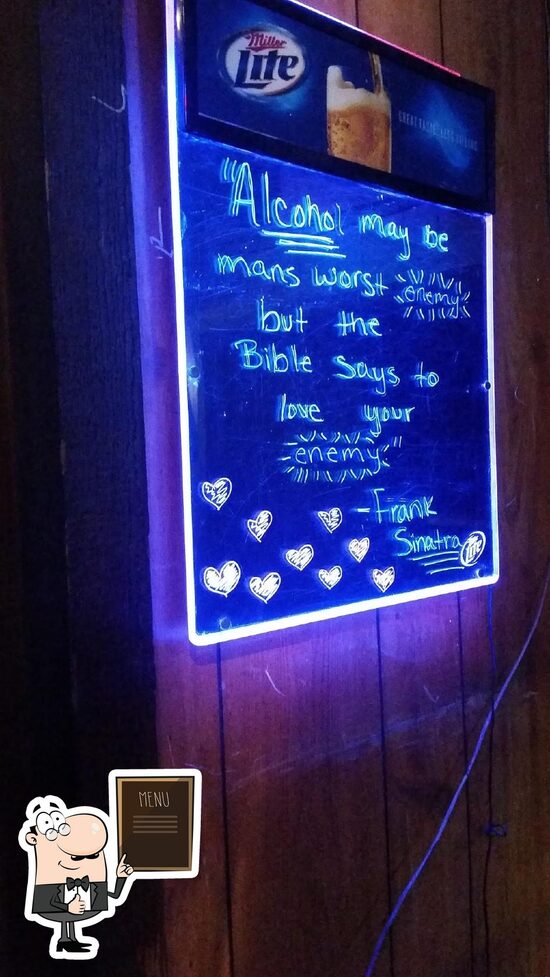 Miller
Lite
GREAT TASTE. LESS FILLING.
"Alcohol may be
mans worst enemy
but the
Bible says to
love your
enemy."
-Frank
Sinatra
Lite
MENU